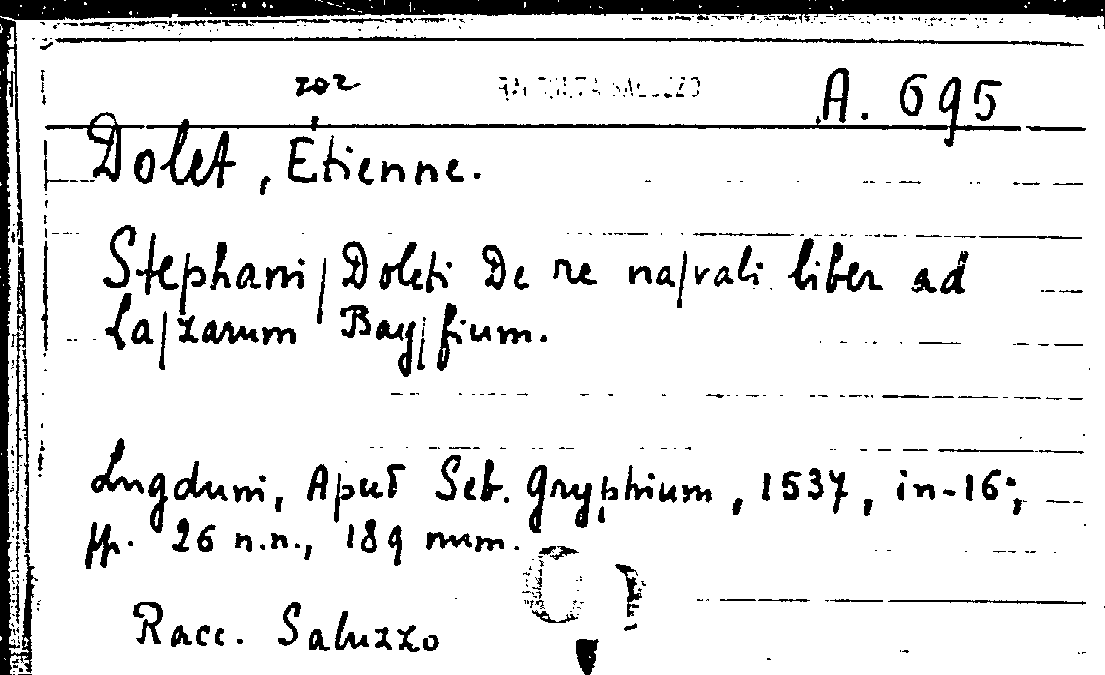 202 RACCOLTA SALUZZO A. 695
Dolet, Étienne.
Stephani/Doleti De re na/vali liber ad
La/zarum Bay/fium.
Lugduni, Apud Seb. Gryphium, 1537, in-16°;
pp. 26 n.n., 189 num.
Racc. Saluzzo